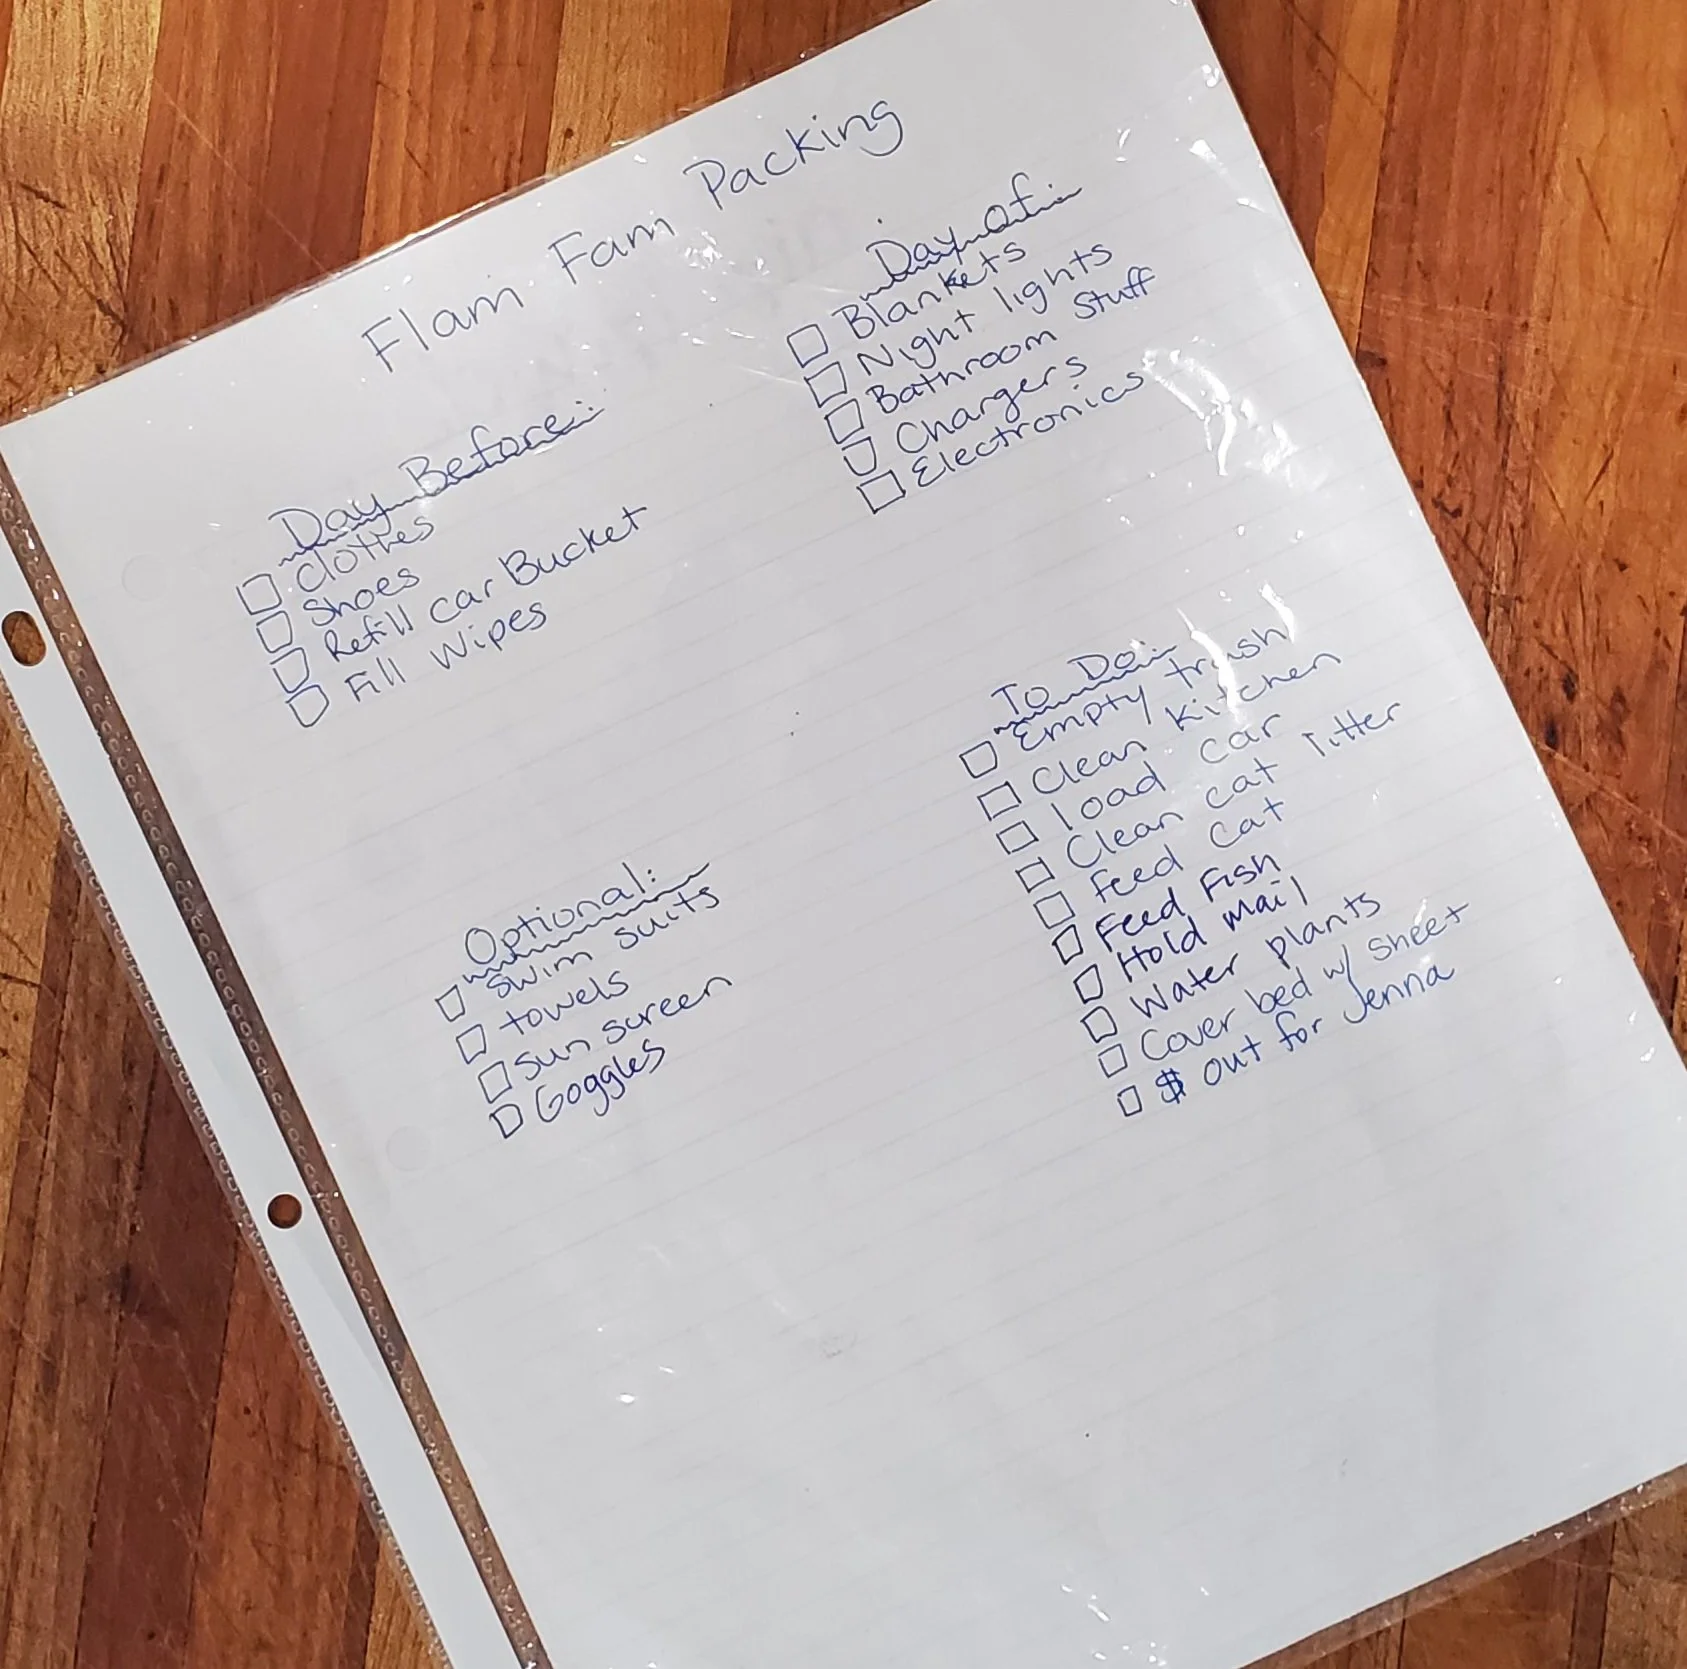 Flam Fam Packing
Day Before:
Clothes
Shoes
Refill Car Bucket
Fill Wipes
Day Of:
Blankets
Night lights
Bathroom Stuff
Chargers
Electronics
Optional:
Swim suits
towels
Sun screen
Goggles
To Do:
Empty trash
Clean Kitchen
load car
Clean cat litter
feed cat
Feed Fish
Hold mail
Water plants
Cover bed w/ sheet
$ out for Jenna